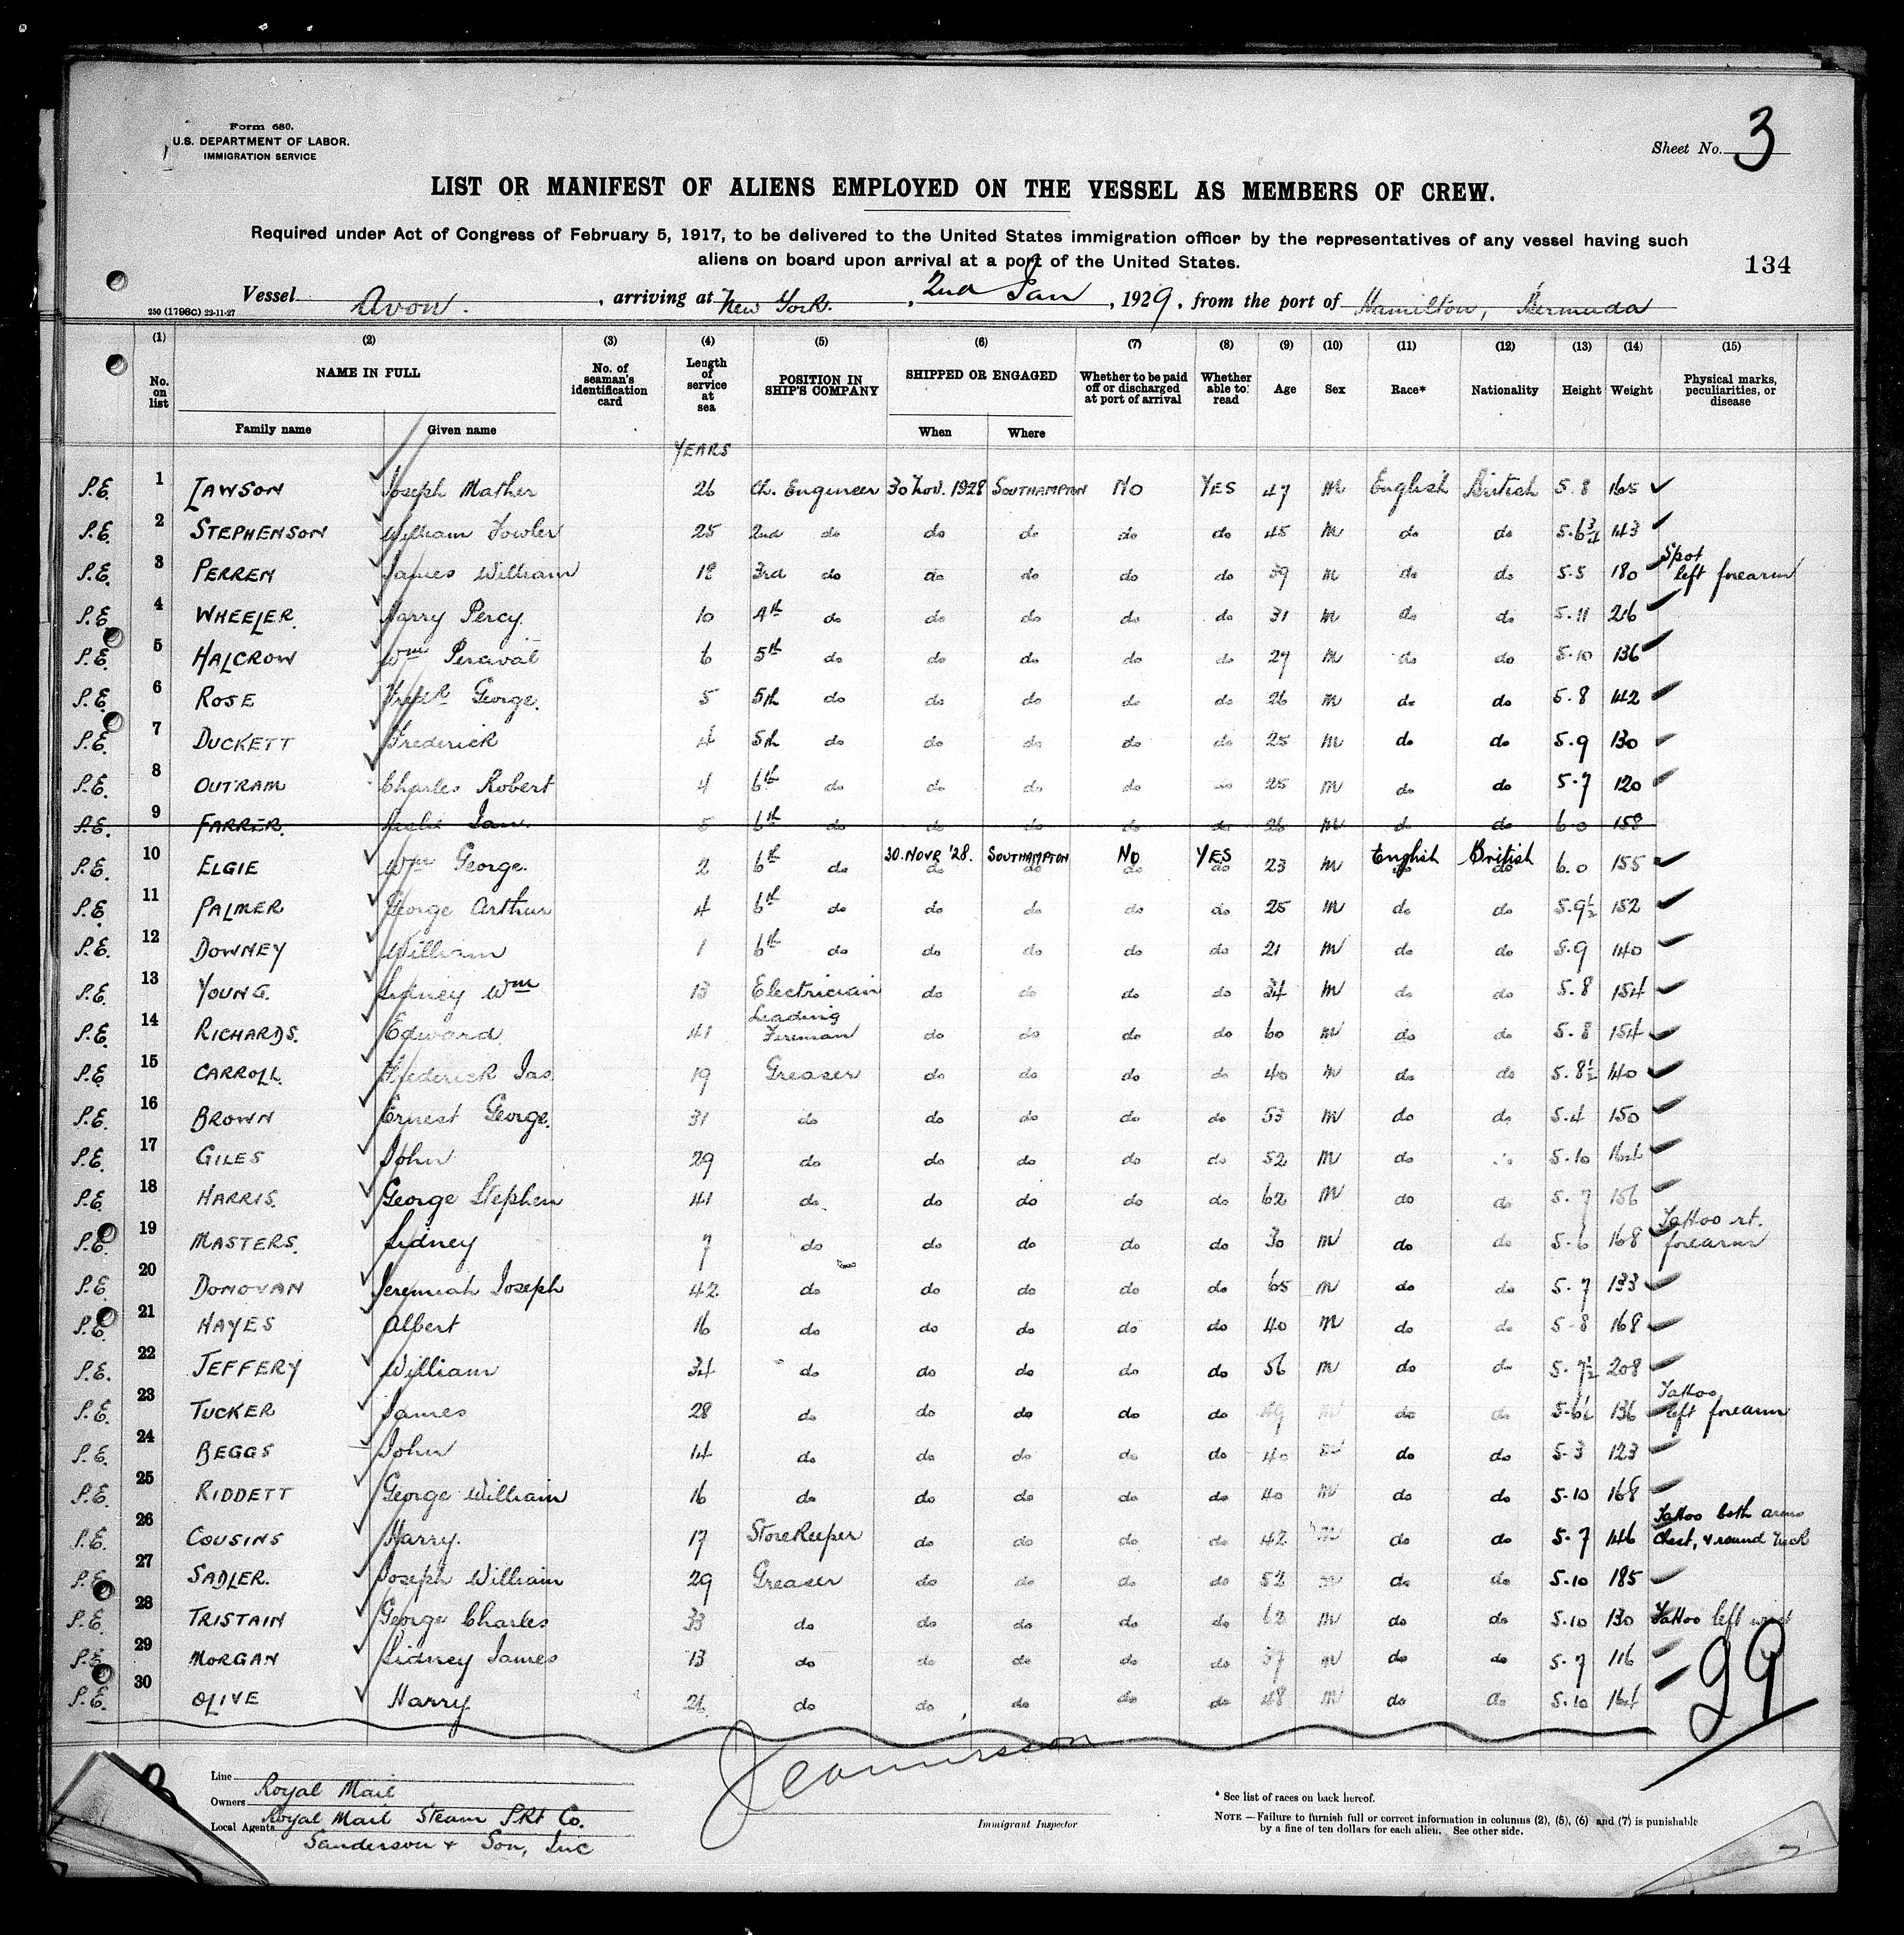 Form 680.
U.S. DEPARTMENT OF LABOR.
IMMIGRATION SERVICE
Sheet No. 3
LIST OR MANIFEST OF ALIENS EMPLOYED ON THE VESSEL AS MEMBERS OF CREW.
Required under Act of Congress of February 5, 1917, to be delivered to the United States immigration officer by the representatives of any vessel having such
aliens on board upon arrival at a port of the United States.
134
Vessel Avon. , arriving at New York. , 2nd Jan , 1929, from the port of Hamilton, Bermuda
250 (1798C) 22-11-27
(1) (2) (3) (4) (5) (6) (7) (8) (9) (10) (11) (12) (13) (14) (15)
No. on list NAME IN FULL Family name Given name No. of seaman's identification card Length of service at sea POSITION IN SHIP'S COMPANY SHIPPED OR ENGAGED When Where Whether to be paid off or discharged at port of arrival Whether able to read Age Sex Race* Nationality Height Weight Physical marks, peculiarities, or disease
YEARS
P.E. 1 LAWSON Joseph Mather 26 Ch. Engineer 30 Nov. 1928 SOUTHAMPTON NO YES 47 M English British 5.8 165
P.E. 2 STEPHENSON William Fowler 25 2nd do do do do do 45 M do do 5.6¾ 143
P.E. 3 PERREN James William 18 3rd do do do do do 39 M do do 5.5 180 Spot left forearm
P.E. 4 WHEELER. Harry Percy. 10 4th do do do do do 31 M do do 5.11 216
P.E. 5 HALCROW Wm Percival 6 5th do do do do do 27 M do do 5.10 136
P.E. 6 ROSE Fredk George. 5 5th do do do do do 26 M do do 5.8 142
P.E. 7 DUCKETT Frederick 4 5th do do do do do 25 M do do 5.9 130
P.E. 8 OUTRAM Charles Robert 4 6th do do do do do 25 M do do 5.7 120
P.E. 9 FARRER. Leslie Ian. 5 6th do do do do do 26 M do do 6.0 158
P.E. 10 ELGIE Wm George. 2 6th do 30.NOVR '28. SOUTHAMPTON NO YES 23 M English British 6.0 155
P.E. 11 PALMER George Arthur 4 6th do do do do do 25 M do do 5.9½ 152
P.E. 12 DOWNEY William 1 6th do do do do do 21 M do do 5.9 140
P.E. 13 YOUNG. Sidney Wm 13 Electrician do do do do 34 M do do 5.8 154
P.E. 14 RICHARDS. Edward 41 Leading Fireman do do do do 60 M do do 5.8 154
P.E. 15 CARROLL. Frederick Jas 19 Greaser do do do do 40 M do do 5.8½ 140
P.E. 16 BROWN Ernest George. 31 do do do do do 53 M do do 5.4 150
P.E. 17 GILES John 29 do do do do do 52 M do do 5.10
P.E. 18 HARRIS. George Stephen 41 do do do do do 62 M do do 5.7 156
P.E. 19 MASTERS. Sidney 7 do do do do do 30 M do do 5.6 168 Tattoo rt. forearm
P.E. 20 DONOVAN Jeremiah Joseph 42 do do do do do 65 M do do 5.7 133
P.E. 21 HAYES Albert 16 do do do do do 40 M do do 5.8 168
P.E. 22 JEFFERY William 34 do do do do do 56 M do do 5.7½ 208
P.E. 23 TUCKER James 28 do do do do do 49 M do do 5.6½ 136 Tattoo left forearm
P.E. 24 BEGGS John 14 do do do do do 40 M do do 5.3 123
P.E. 25 RIDDETT George William 16 do do do do do 40 M do do 5.10 168
P.E. 26 COUSINS Harry. 17 Storekeeper do do do do 42 M do do 5.7 146 Tattoo both arms Chest, & round neck
P.E. 27 SADLER. Joseph William 29 Greaser do do do do 52 M do do 5.10 185
P.E. 28 TRISTAIN George Charles 33 do do do do do 62 M do do 5.10 130 Tattoo left wrist
P.E. 29 MORGAN Sidney James 13 do do do do do 37 M do do 5.7 116
P.E. 30 OLIVE Harry 26 do do do do do 48 M do do 5.10 164
29
Line Royal Mail
Owners Royal Mail Steam Pkt Co.
Local Agents Sanderson & Son, Inc
Immigrant Inspector
* See list of races on back hereof.
NOTE — Failure to furnish full or correct information in columns (2), (5), (6) and (7) is punishable
by a fine of ten dollars for each alien. See other side.